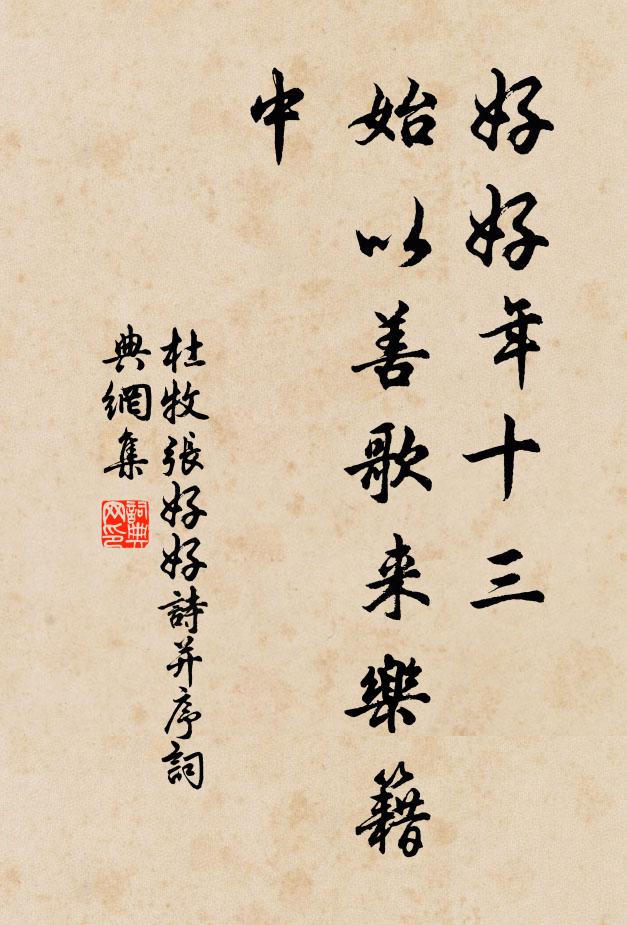 好好年十三
始以善歌来樂籍
中
杜牧張好好詩并序詞
典網集
詞典网印